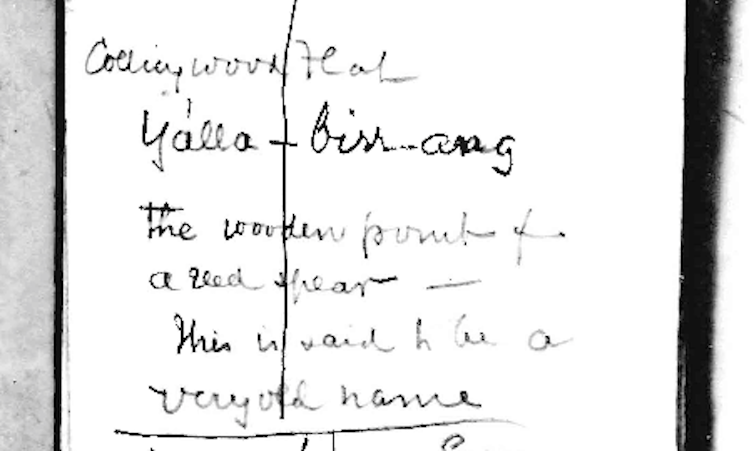 Collingwood Flat
Yálla-birr-ang
the wooden point of
a reed spear —
This is said to be a
very old name